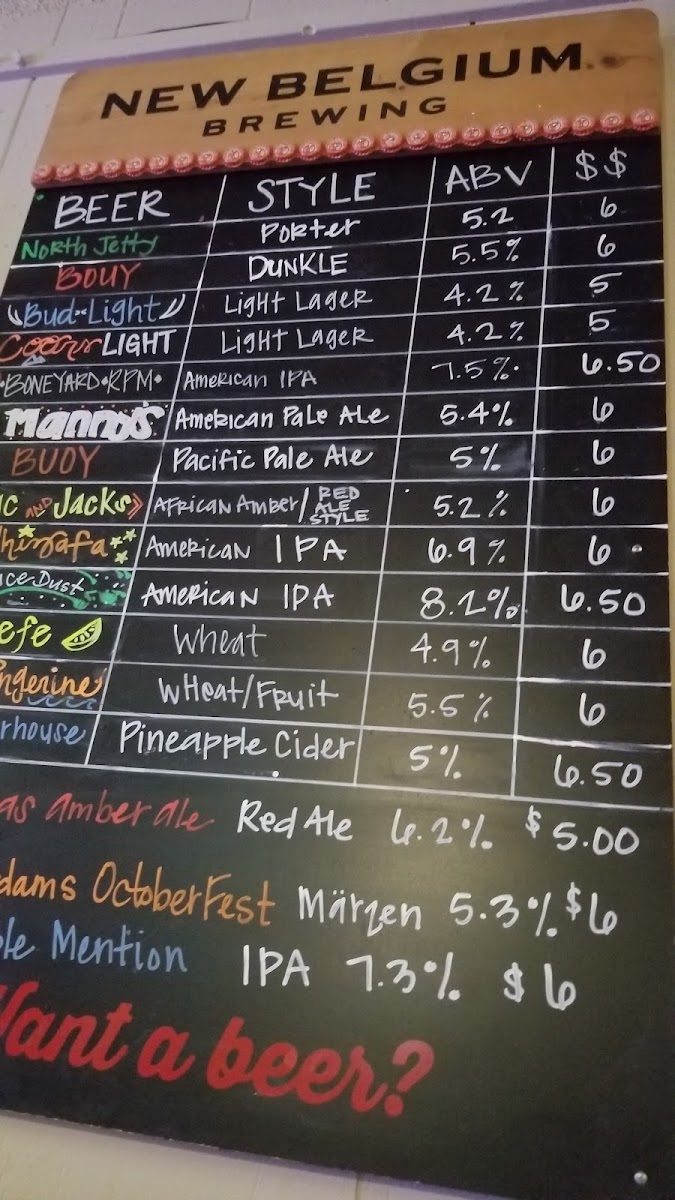 NEW BELGIUM
BREWING
BEER STYLE ABV $$
North Jetty Porter 5.2 6
BOUY DUNKLE 5.5% 6
Bud-Light Light Lager 4.2% 5
Coors LIGHT Light Lager 4.2% 5
•BONEYARD•RPM• American IPA 7.5%. 6.50
Manny's American Pale Ale 5.4% 6
BUOY Pacific Pale Ale 5% 6
c AND Jacks African Amber/ RED ALE STYLE 5.2% 6
American IPA 6.9% 6
ice Dust American IPA 8.2% 6.50
efe Wheat 4.9% 6
ngerine WHeat/Fruit 5.5% 6
rhouse Pineapple Cider 5% 6.50
as amber ale Red Ale 6.2% $5.00
dams OctoberFest Märzen 5.3% $6
le Mention IPA 7.3% $6
Want a beer?